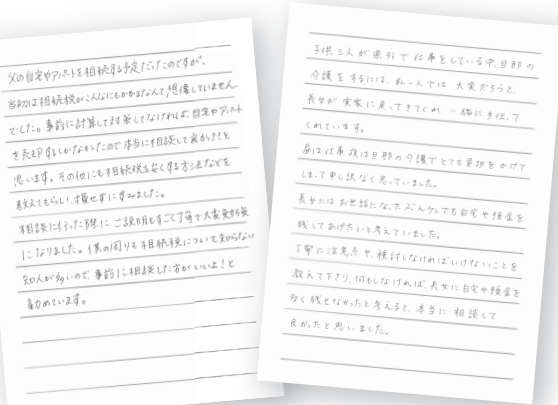 父の自宅やアパートを相続する予定だったのですが、
当初は相続税がこんなにもかかるなんて想像していません
でした。事前に計算して対策してなければ、自宅やアパート
を売却するしかなかったので本当に相談して良かった！と
思います。その他にも相続税を安くする方法などを
教えてもらい、損せずにすみました。
相談に行った際に ご説明もすごく丁寧で大変勉強
になりました。僕の周りも相続税について知らない
知人が多いので、事前に相談した方がいいよ！と
勧めています。
子供三人が県外で仕事をしている中、旦那の
介護をするには、私一人では 大変だろうと、
長女が実家に戻ってきてくれ、一緒に手伝って
くれています。
昼は仕事夜は旦那の介護でとても負担をかけて
しまって申し訳なく思っていました。
長女にはお世話になったぶん少しでも自宅や預金を
残してあげたいと考えていました。
丁寧に注意点や、検討しなければいけないことを
教えて下さり、何もしなければ、長女に自宅や預金を
多く残せなかったと考えると、本当に 相談して
良かったと思いました。